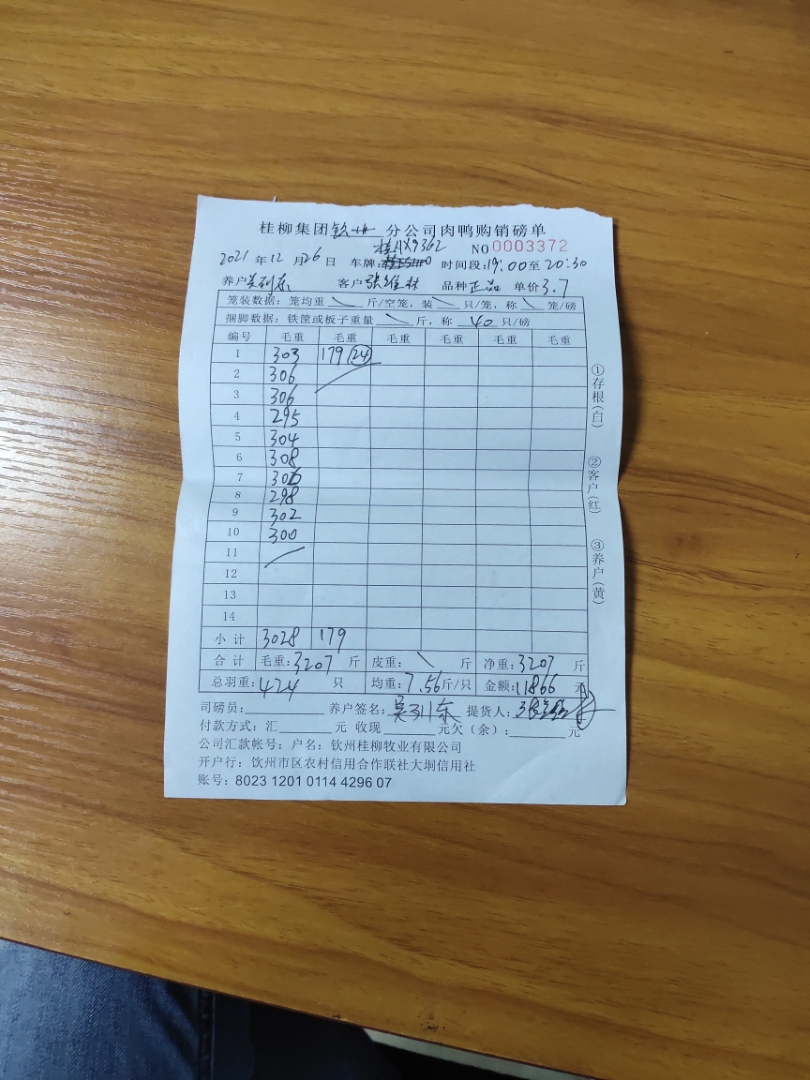 桂柳集团钦州分公司肉鸭购销磅单
NO0003372
2021年12月26日 车牌: 时间段:19:00至20:30
养户 客户张维林 品种正品 单价3.7
笼装数据: 笼均重 \ 斤/空笼, 装 \ 只/笼, 称 \ 笼/磅
捆脚数据: 铁筐或板子重量 \ 斤, 称 40 只/磅
编号 毛重 毛重 毛重 毛重 毛重 毛重
1 303 179 (24)
2 306
3 306
4 295
5 304
6 308
7 306
8 298
9 302
10 300
11
12
13
14
小计 3028 179
合计 毛重:3207斤 皮重: \ 斤 净重:3207斤
总羽重:424只 均重:7.56斤/只 金额:11866元
司磅员: 养户签名: 提货人:
付款方式: 汇 元 收现 元欠(余): 元
公司汇款帐号: 户名: 钦州桂柳牧业有限公司
开户行: 钦州市区农村信用合作联社大垌信用社
账号: 8023 1201 0114 4296 07
①存根(白)
②客户(红)
③养户(黄)